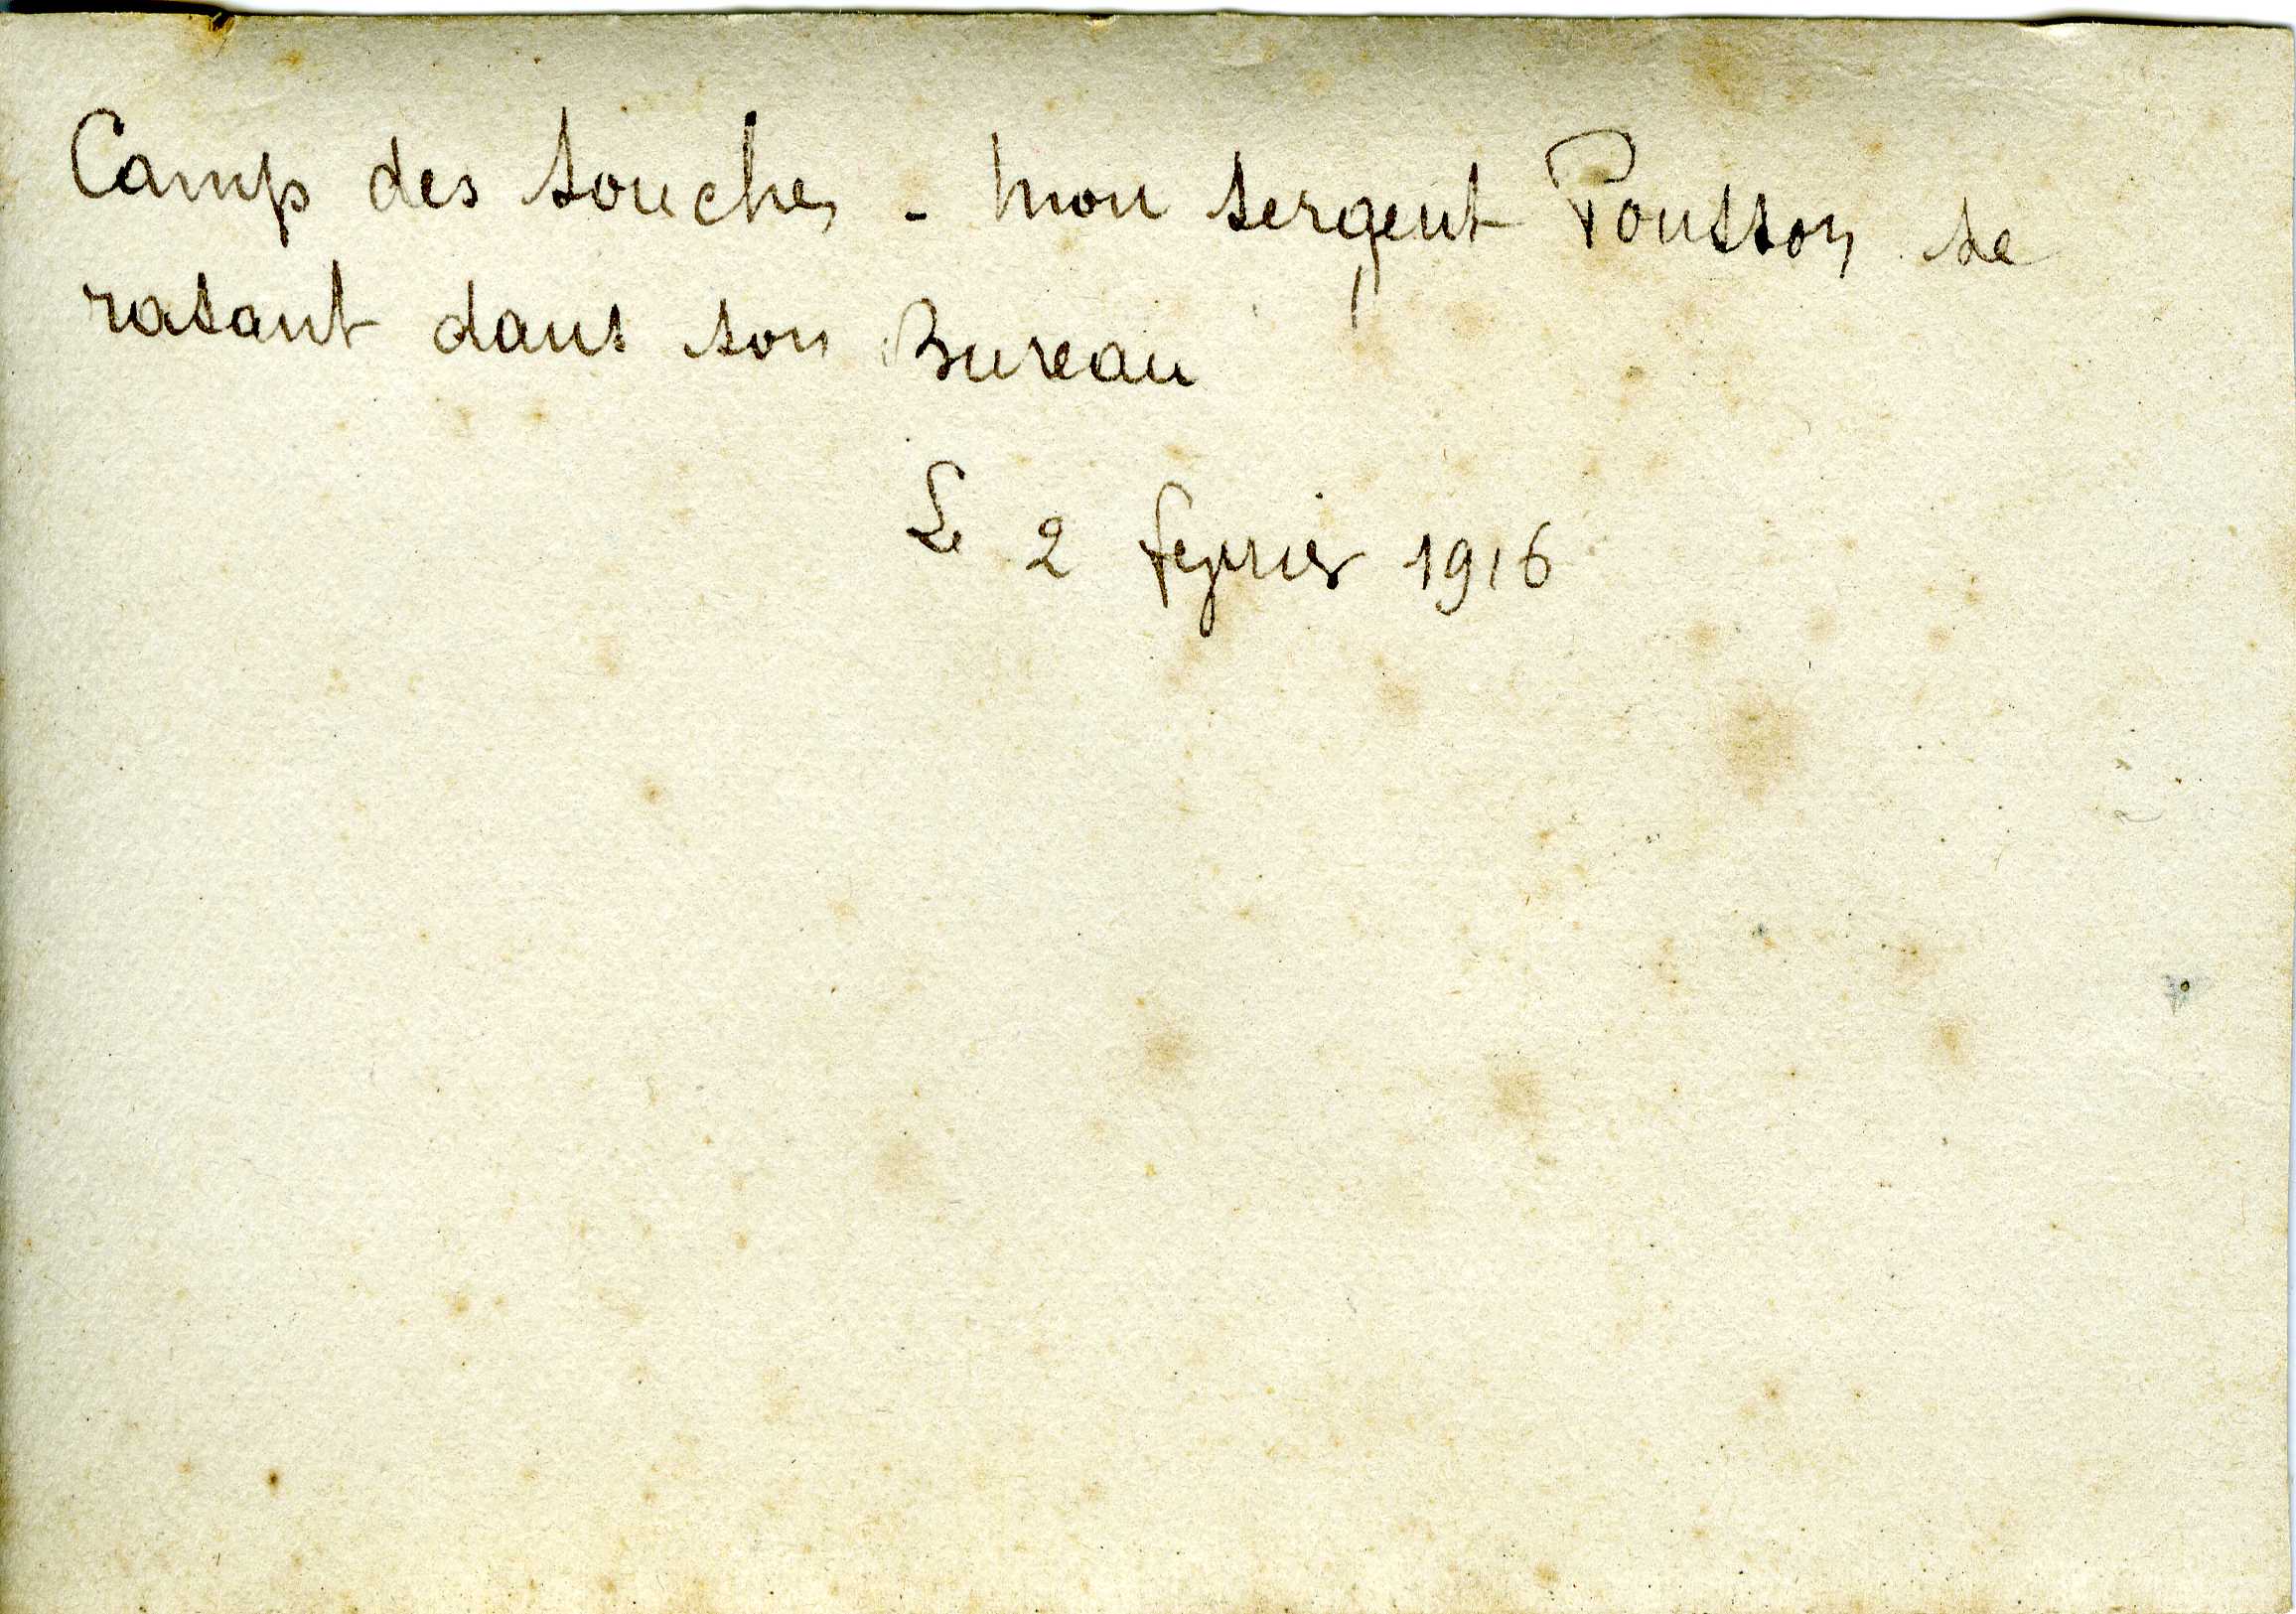 Camp des souches - Mon sergent Pousson se
rasant dans son Bureau
Le 2 fevrier 1916